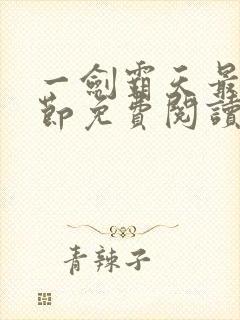 一劍霸天最
節免費閱讀
青辣子